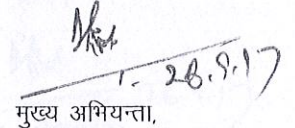 28.9.17
मुख्य अभियन्ता,